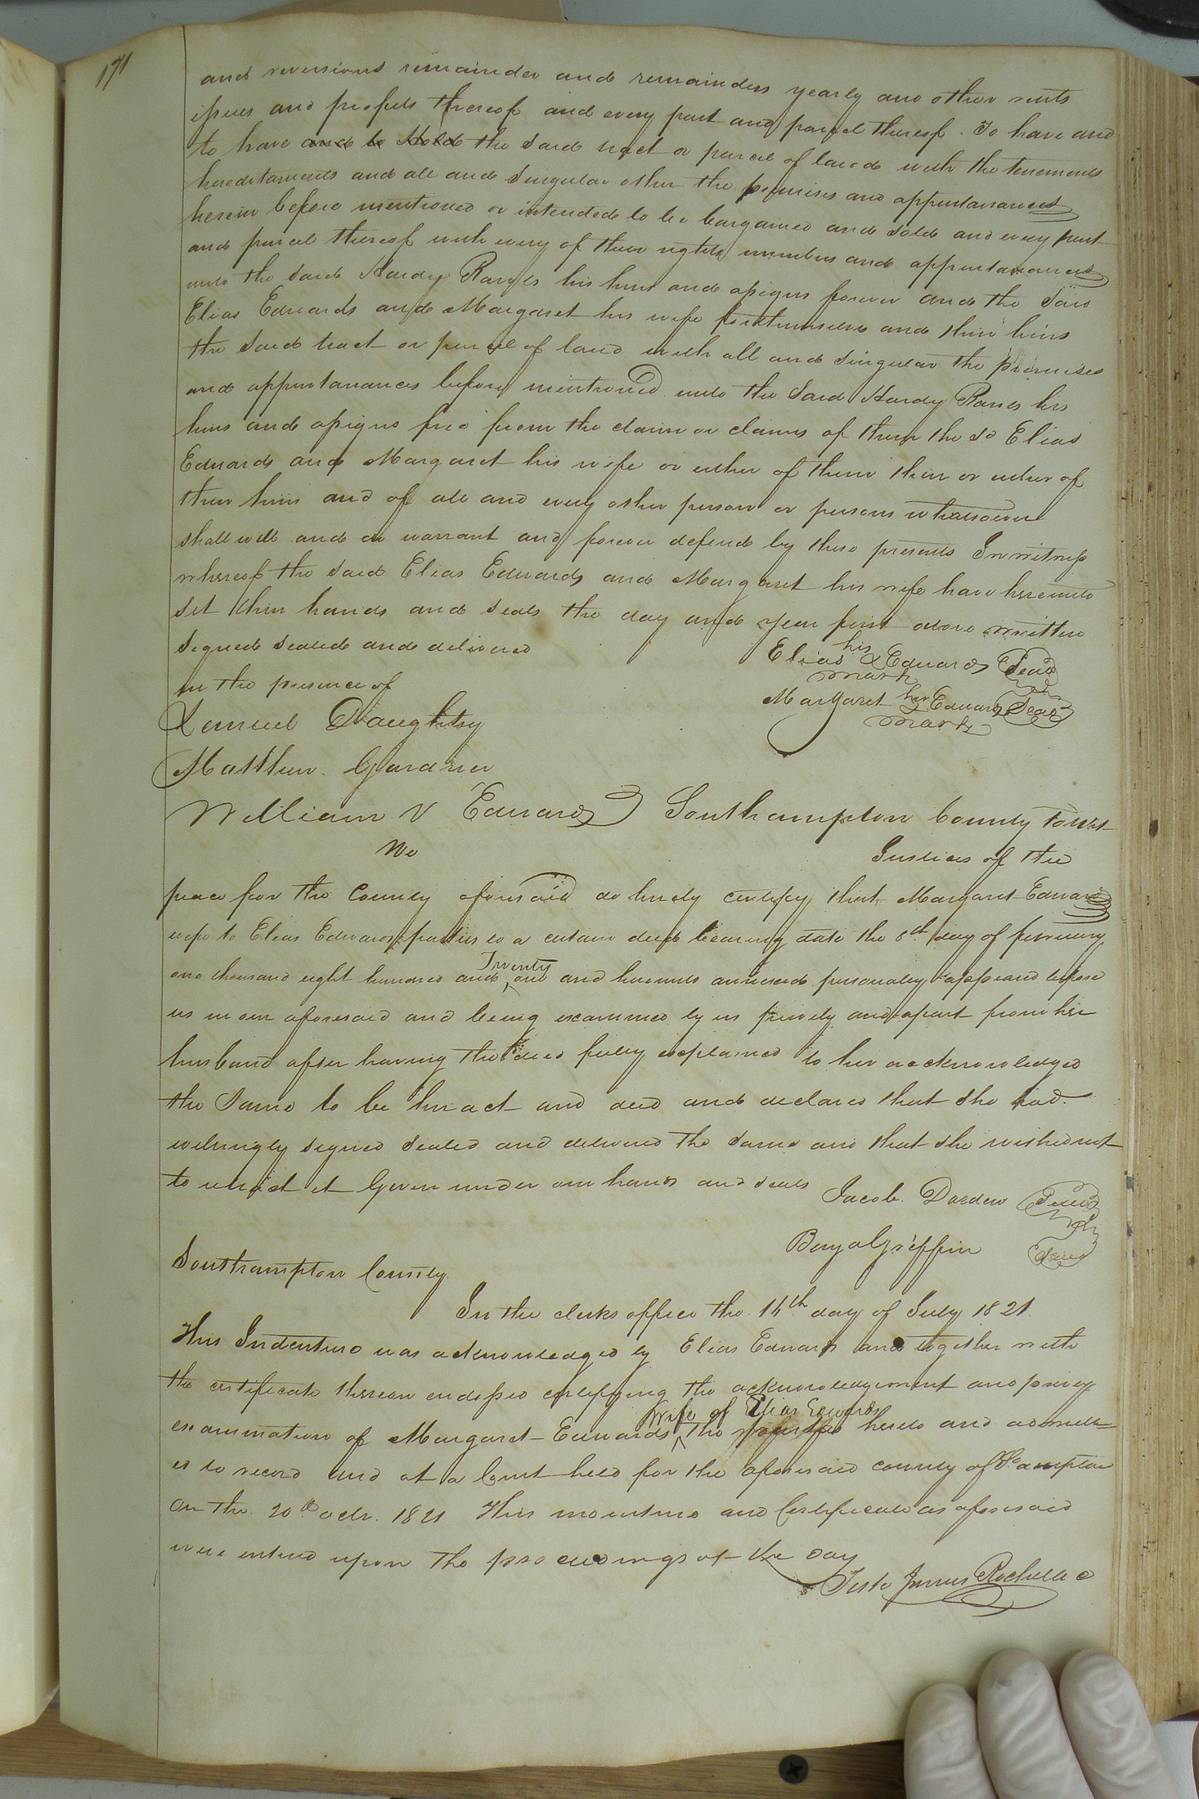 171
and reversions remainder and remainders yearly and other rents
issues and profits thereof and every part and parcel thereof. To have and
to have and to Hold the said tract or parcel of land with the tenements
hereditaments and all and singular other the premises and appurtanances
herein before mentioned or intended to be bargained and sold and every part
and parcel thereof with every of their rights members and appurtanances
unto the said Hardy Raiford his heirs and assigns forever and the said
Elias Edwards and Margaret his wife for themselves and their heirs
the said tract or parcel of land with all and singular the premises
and appurtanances before mentioned unto the said Hardy his
heirs and assigns free from the claim or claims of them the sd Elias
Edwards and Margaret his wife or either of them their or either of
their heirs and of all and every other person or persons whatsoever
shall will and do warrant and forever defend by these presents In witness
whereof the said Elias Edwards and Margaret his wife have hereunto
set their hands and seals the day and year first above written
signed sealed and delivered
in the presence of
Elias his X mark Edwards Seal
Margaret her X mark Edwards Seal
Lemuel Daughtry
Matthew Gardner
William V Edwards
Southampton County to wit
We Justices of the
peace for the County aforesaid do hereby certify that Margaret Edwards
wife to Elias Edwards parties to a certain deed bearing date the 8th day of february
one thousand eight hundred and Twenty one and hereunto annexed personally appeared before
us in our aforesaid and being examined by us privily and apart from her
husband after having the deed fully explained to her acknowledged
the same to be her act and deed and declared that she had
willingly signed sealed and delivered the same and that she wished not
to retract it Given under our hands and seals
Jacob Darden Seal
Benja Griffin Seal
Southampton County
In the clerks office the 14th day of July 1821
This Indenture was acknowledged by Elias Edwards and together with
the certificate thereon endorsed certifying the acknowledgement and privy
examination of Margaret Edwards wife of Elias Edwards the hereto and admitted
to record and at a Court held for the aforesaid county of So ampton
on the 20th 1821 This indenture and Certificate as aforesaid
were entered upon the proceedings of the day
Teste James Rochelle c